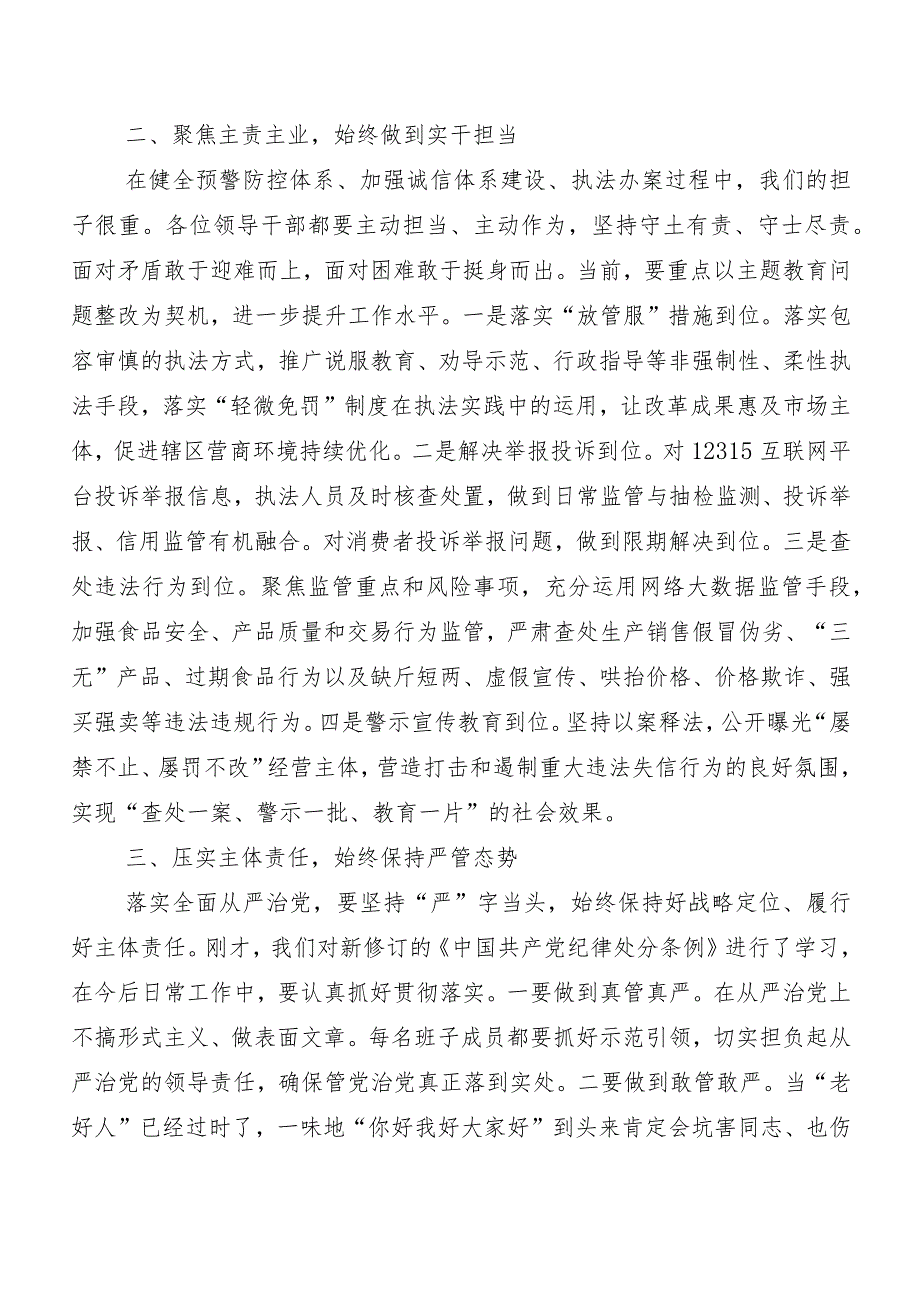 二、聚焦主责主业，始终做到实干担当
在健全预警防控体系、加强诚信体系建设、执法办案过程中，我们的担
子很重。各位领导干部都要主动担当、主动作为，坚持守土有责、守士尽责。
面对矛盾敢于迎难而上，面对困难敢于挺身而出。当前，要重点以主题教育问
题整改为契机，进一步提升工作水平。一是落实“放管服”措施到位。落实包
容审慎的执法方式，推广说服教育、劝导示范、行政指导等非强制性、柔性执
法手段，落实“轻微免罚”制度在执法实践中的运用，让改革成果惠及市场主
体，促进辖区营商环境持续优化。二是解决举报投诉到位。对12315互联网平
台投诉举报信息，执法人员及时核查处置，做到日常监管与抽检监测、投诉举
报、信用监管有机融合。对消费者投诉举报问题，做到限期解决到位。三是查
处违法行为到位。聚焦监管重点和风险事项，充分运用网络大数据监管手段，
加强食品安全、产品质量和交易行为监管，严肃查处生产销售假冒伪劣、“三
无”产品、过期食品行为以及缺斤短两、虚假宣传、哄抬价格、价格欺诈、强
买强卖等违法违规行为。四是警示宣传教育到位。坚持以案释法，公开曝光“屡
禁不止、屡罚不改”经营主体，营造打击和遏制重大违法失信行为的良好氛围，
实现“查处一案、警示一批、教育一片”的社会效果。
三、压实主体责任，始终保持严管态势
落实全面从严治党，要坚持“严”字当头，始终保持好战略定位、履行
好主体责任。刚才，我们对新修订的《中国共产党纪律处分条例》进行了学习，
在今后日常工作中，要认真抓好贯彻落实。一要做到真管真严。在从严治党上
不搞形式主义、做表面文章。每名班子成员都要抓好示范引领，切实担负起从
严治党的领导责任，确保管党治党真正落到实处。二要做到敢管敢严。当“老
好人”已经过时了，一味地“你好我好大家好”到头来肯定会坑害同志、也伤